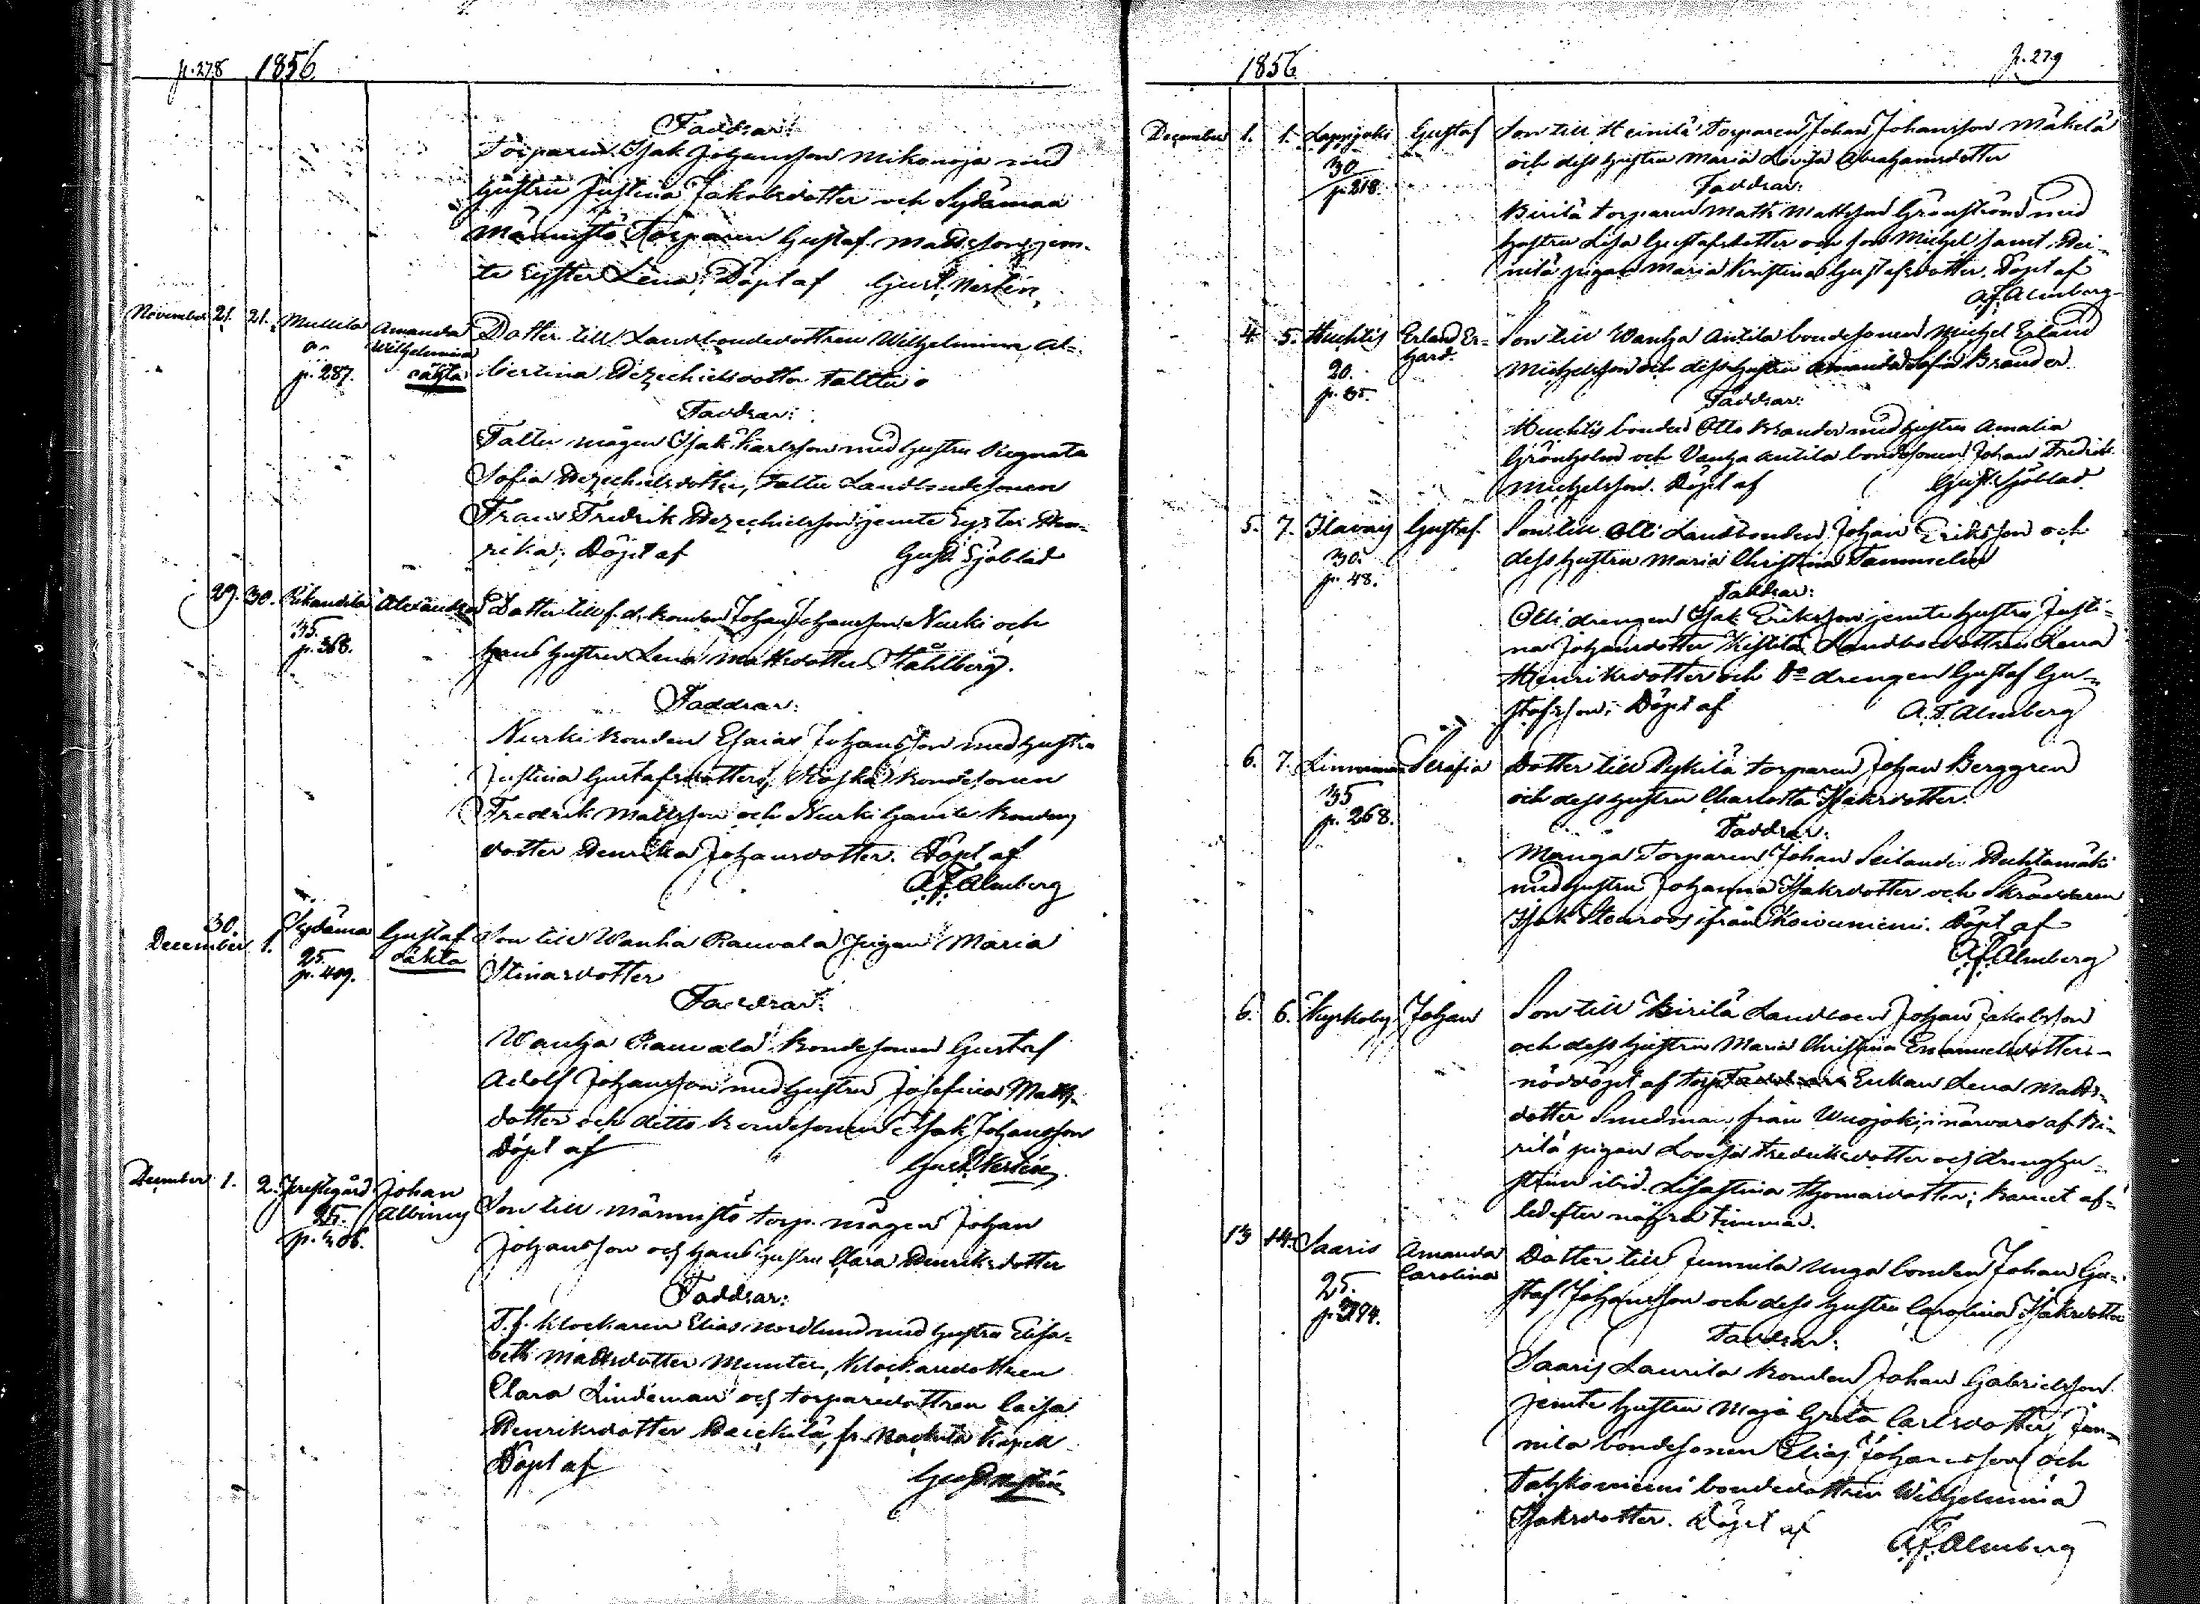 p. 278 1856
Faddrar:
Torparen Isak Johansson Mikonoja med
hustru Justina Jakobsdotter och Sydänmaa
Männistö Torparen Gustaf Mattsson jem-
te Syster Lena; Döpt af Gust. Nestén
November 21. 21. Mullila Amanda Wilhelmina oäkta p. 287.
Dotter till Landbondedottren Wilhelmina Al-
bertina Hezechielsdotter Taltte
Faddrar:
Taltte mågen Isak Karlsson med hustru Regnata
Sofia Hezechielsdotter, Taltte Landbondesonen
Frans Fredrik Hezechielsson jemte Syster Hen-
rika; Döpt af Gust. Sjöblad
29. 30. Alexandra 35. p. 368.
Dotter till f. d. bonden Johan Johansson Nurki och
hans hustru Lena Mattsdotter Ståhlberg.
Faddrar:
Nurki bonden Esaias Johansson med hustru
Justina Gustafsdotter, bondesonen
Fredrik Mattsson och Nurki bonde
dotter Henrika Johansdotter. Döpt af
A. F. Almberg
30. December 1. Sydänmaa Gustaf oäkta 25. p. 409.
Son till Wanha Rauvala Pigan Maria
Stinasdotter
Faddrar:
Wanha Rauvala bondesonen Gustaf
Adolf Johansson med hustru Josefina Matts-
dotter och ditto bondesonen Isak Johansson
Döpt af Gust. Nestén
December 1. 2. Prestgård Johan Albinus 25. p. 406.
Son till Männistö torp. mågen Johan
Johansson och hans hustru Clara Henriksdotter
Faddrar:
T. f. Klockaren Elias Nordlund med hustru Elisa-
beth Mattsdotter Munter, Klockaredottren
Clara Lindeman och torparedottren Caisa
Henriksdotter Heickilä, fr. Kapell
Döpt af Gust. Nestén
1856 p. 279
December 1. 1. Lappijoki Gustaf 30 p. 218.
Son till Heinilä Torparen Johan Johansson Mäkelä
och dess hustru Maria Lovisa Abrahamsdotter
Faddrar:
Birilä torparen Matts Mattsson Grönstrand med
hustru Lisa Gustafsdotter och son Michel samt Hei-
nilä pigan Maria Kristina Gustafsdotter. Döpt af
A. F. Almberg
4 5. Huchtis Erland Er-
hard. 20.
Son till Wanha Antila bondesonen Michel Erland
Michelsson och dess hustru Amanda Sofia Brander
Faddrar:
Huchtis bonden Otto Brander med hustru Amalia
Grönholm och Vanha Antila bondesonen Johan Fredrik
Michelsson. Döpt af Gust. Sjöblad
5. 7. Ilavais Gustaf. 30. p. 48.
Son till Olli Landbonden Johan Eriksson och
dess hustru Maria Christina Tammelin
Faddrar:
Olli drengen Isak Eriksson jemte hustru Justi-
na Johansdotter Landbodottren Lena
Henriksdotter och Do drengen Gustaf Gu-
stafsson; Döpt af A. F. Almberg
6. 7. Linnamaa Serafia 35 p. 268.
Dotter till Pykilä torparen Johan Berggren
och dess hustru Charlotta Isaksdotter.
Faddrar:
Manga Torparen Johan Huhtamäki
med hustru Johanna Isaksdotter och Skräddaren
Isak Stenroos ifrån Koivuniemi. Döpt af
A. F. Almberg
6. 6. Kyrkoby Johan
Son till Birilä Landbon Johan Jakobsson
och dess hustru Maria Christina Emanuelsdotter
nöddöpt af torp. Enkan Lena Matts-
dotter Smedman, från Wuojoki, i närvaro af Bi-
rilä pigan Lovisa Fredriksdotter och dreng hu-
strun ibid. Lisastina Thomasdotter; barnet af-
led efter några timmar.
13 14. Saaris Amanda
Carolina 25. p.
Dotter till Junnila unga bonden Johan Gu-
staf Johansson och dess hustru Carolina Isaksdotter
Faddrar:
Saaris Laurila bonden Johan Gabrielsson
jemte hustru Maja Greta Carlsdotter, Jun-
nila bondesonen Elias Johansson och
bondedottren Wilhelmina
Isaksdotter. Döpt af
A. F. Almberg